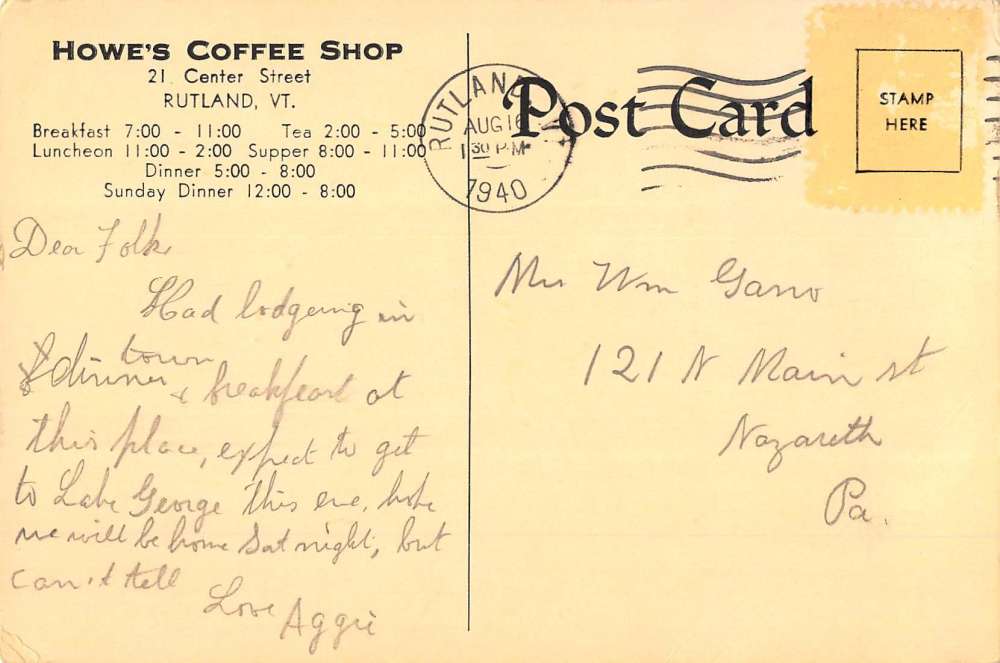 HOWE'S COFFEE SHOP
21 Center Street
RUTLAND, VT.
Breakfast 7:00 - 11:00 Tea 2:00 - 5:00
Luncheon 11:00 - 2:00 Supper 8:00 - 11:00
Dinner 5:00 - 8:00
Sunday Dinner 12:00 - 8:00
Dear Folks
Had lodgeing in
town
& dinner & breakfeast at
this place, expect to get
to Lake George this eve. hope
we will be home Sat night, but
can't tell
Love Aggie
RUTLAND
AUG 16
1 30 P.M
1940
Post Card
STAMP
HERE
Mrs Wm Gano
121 N Main st
Nazareth
Pa.